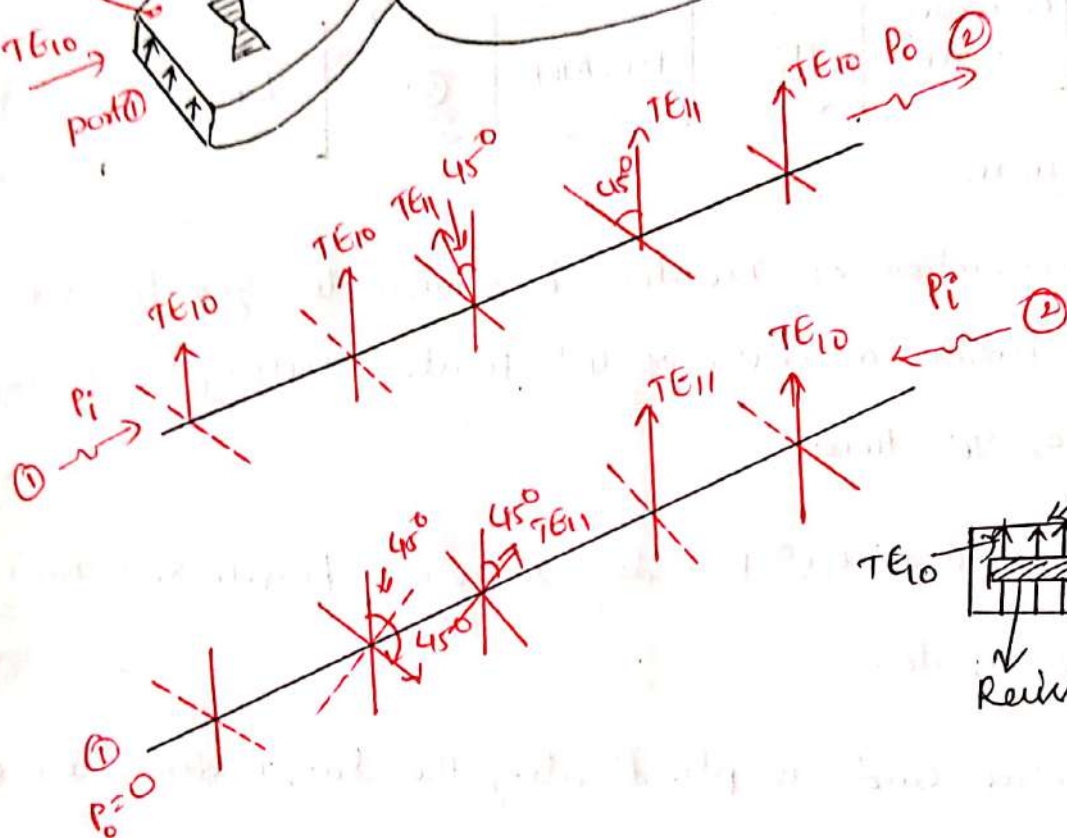 TE10
port①
TE10 Po ②
TE11
45°
TE11
45°
TE10
TE10
Pi
①
Pi ②
TE10
TE11
45°
TE11
45°
45°
TE10
①
Po=0